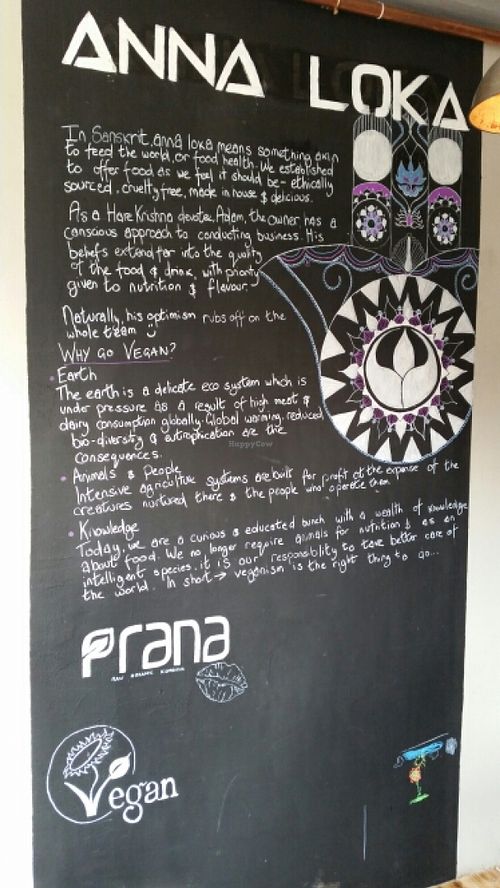 ANNA LOKA
In Sanskrit, anna loka means something akin
to feed the world, or food health. We established
to offer food as we feel it should be - ethically
sourced, cruelty free, made in house & delicious.
As a Hare Krishna devotee, Adam, the owner has a
conscious approach to conducting business. His
beliefs extend far into the quality
of the food & drink, with priority
given to nutrition & flavour.
Naturally, his optimism rubs off on the
whole team
WHY GO VEGAN?
• Earth
The earth is a delicate eco system which is
under pressure as a result of high meat &
dairy consumption globally. Global warming, reduced
bio-diversity & eutrophication are the
consequences.
• Animals & People
Intensive agriculture systems are built for profit at the expense of the
creatures nurtured there & the people who operate them
• Knowledge
Today, we are a curious & educated bunch with a wealth of knowledge
about food. We no longer require animals for nutrition & as an
intelligent species, it is our responsibility to take better care of
the world. In short → veganism is the right thing to do...
prana
RAW ORGANIC KOMBUCHA
Vegan
HappyCow